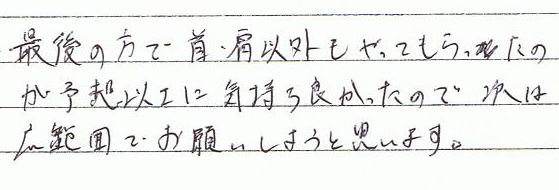 最後の方で首・肩以外もやってもらったの
が予想以上に気持ち良かったので次は
広範囲でお願いしようと思います。